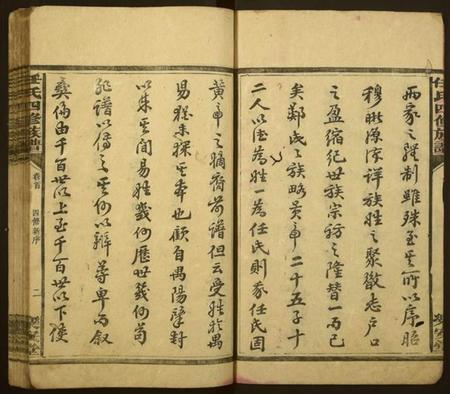 任氏四修族譜
兩家之體制雖殊至其所以序昭
穆晰源流詳族姓之聚散志戶口
之盈縮紀世族宗祊之隆替一而已
矣鄭氏之族略黃帝二十五子十
二人以德為姓一為任氏則我任氏固
黃帝之嫡裔前譜但云受姓於禺
易猶未探其本也顧自禺陽肇封
以來其間易姓幾何歷世幾何苟
非譜以傳之其何以辨尊卑而叙
彝倫由千百世以上至千百世以下使
任氏四修族譜
卷首
四修新序
二